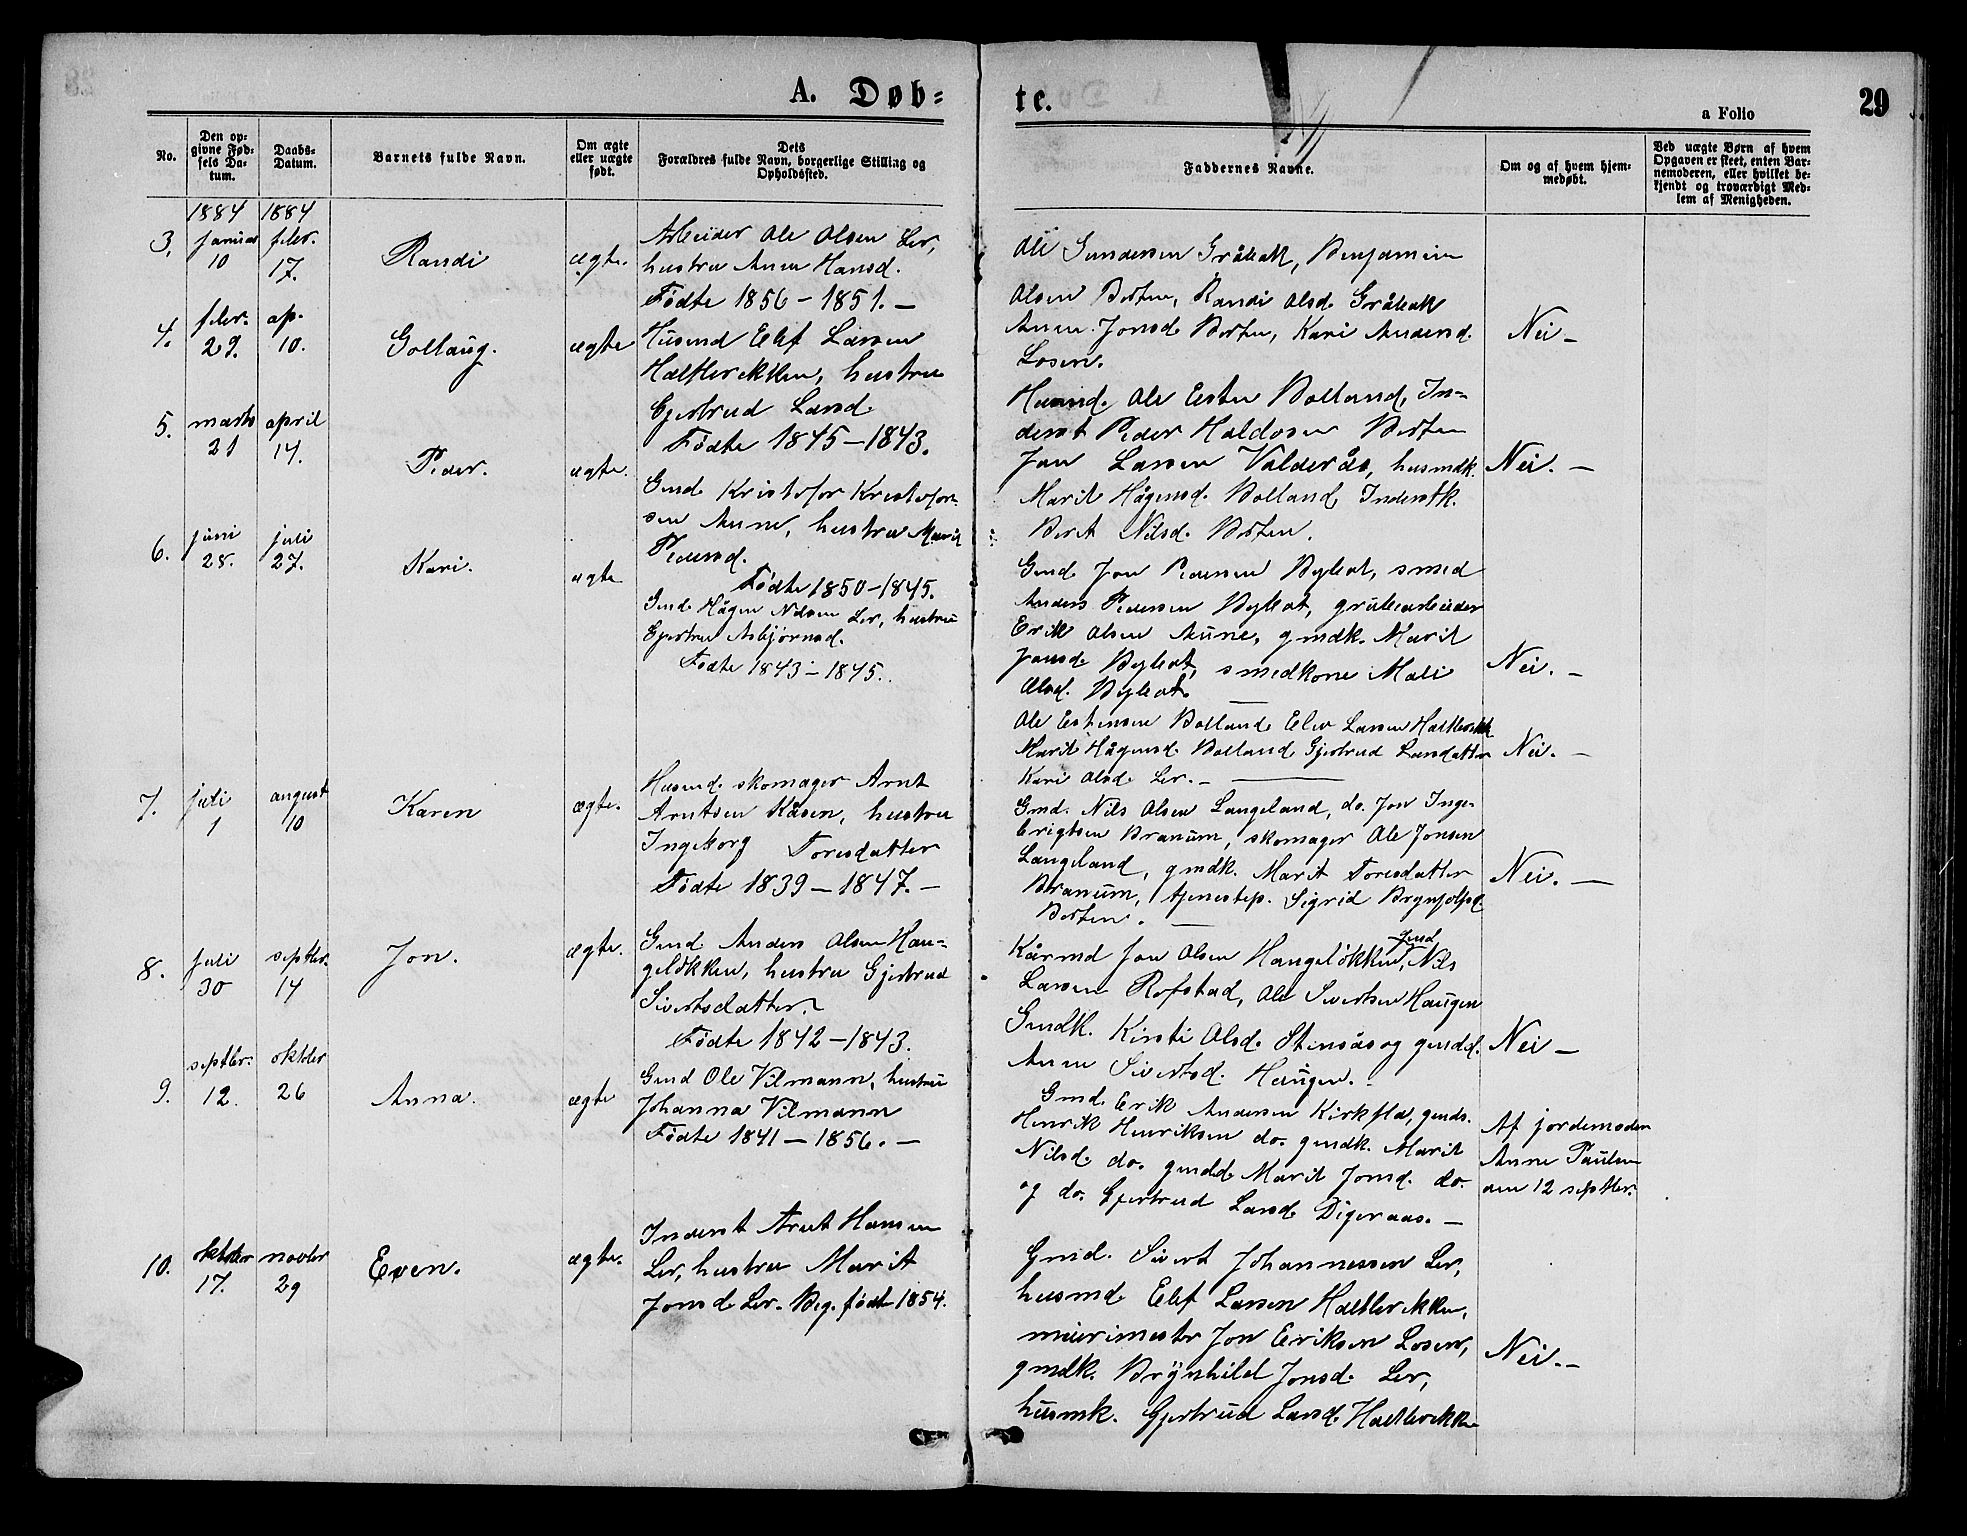 A. Døb=
te.
29
a Folio
No.
Den op=
givne Fød=
sels Da=
tum.
Daabs=
Datum.
Barnets fulde Navn.
Om ægte
eller uægte
født.
Dets
Forældres fulde Navn, borgerlige Stilling og
Opholdssted.
Faddernes Navne.
Om og af hvem hjem=
medøbt.
Ved uægte Børn af hvem
Opgaven er skeet, enten Bar=
nemoderen, eller hvilket be=
kjendt og troværdigt Med=
lem af Menigheden.
1884 1884
3. januar febr.
10 17.
Randi
ægte.
Arbeider Ole Olsen Ler,
hustru Anne Hansd.
Fødte 1856 - 1851. -
Ole Gundersen Gråbak, Benjamin
Olsen Borten, Randi Olsd. Gråbak
Anne Jonsd. Borten, Kari Andersd.
Losen.
Nei -
4. febr. ap.
29. 10.
Gollaug.
ægte
Husmd. Elef Larsen
Haltbrekken, hustru
Gjertrud Larsd.
Fødte 1845 - 1843.
Husmd. Ole Esten Bolland, In=
derst Peder Haldosen Borten
Jon Larsen Valderås, husmdk.
Marit Hågensd. Bolland, Inderstk.
Berit Nilsd. Borten.
Nei. -
5. marts april
21 14.
Peder.
ægte.
Gmd. Kristofor Kristofor=
sen Aune, hustru Marit
Pedersd.
Fødte 1850 - 1845.
Gmd. Jon Pedersen Bybrot, smed
Anders Pedersen Bybrot, grubearbeider
Erik Olsen Aune, gmdk. Marit
Jonsd. Bybrot, smedkone Mali
Olsd. Bybrot.
Nei. -
6. juni juli
28. 27.
Kari.
ægte
Gmd. Hågen Nilsen Ler, hustru
Gjertru Asbjørnsd.
Fødte 1843 - 1845.
Ole Estensen Bolland, Elev Larsen Haltbrekk
Marit Hågensd. Bolland, Gjertrud Larsdatter
Kari Olsd. Ler. -
Nei. -
7. juli august
1 10
Karen
ægte.
Husmd. skomager Arnt
Arntsen Kåsen, hustru
Ingeborg Toresdatter
Fødte 1839 - 1847. -
Gmd. Nils Olsen Langeland, do. Jon Inge=
brigtsen Branum, skomager Ole Jonsen
Langeland, gmdk. Marit Toresdatter
Branum, tjenestep. Sigrid Brynjolfsd.
Borten. -
Nei. -
8. juli septbr.
30 14
Jon.
ægte.
Gmd. Anders Olsen Hau=
geløkken, hustru Gjertrud
Sivertsdatter.
Fødte 1842 - 1843.
Kårmd Jon Olsen Haugeløkken, Gmd Nils
Larsen Rofstad, Ole Sivertsen Haugen
Gmdk. Kirsti Olsd. Stensås og gmdd.
Anne Sivertsd. Haugen. -
Nei -
9. septbr. oktbr
12. 26
Anna.
ægte
Gmd Ole Vilmann, hustru
Johanna Vilmann
Fødte 1841 - 1856. -
Gmd. Erik Andersen Kirkflå, gmds.
Henrik Henriksen do. gmdk. Marit
Nilsd. do. gmdd. Marit Jonsd. do.
og do. Gjertrud Larsd. Digeraas. -
Af jordemoder
Anne Paulsen
den 12 septbr.
10. oktober novbr
17. 29
Even.
ægte.
Inderst Arnt Hansen
Ler, hustru Marit
Jonsd Ler. Beg. født 1854.
Gmd. Sivert Johannessen Ler,
husmd Elef Larsen Haltbrekken,
muurmester Jon Eriksen Losen,
gmdk. Brynhild Jonsd. Ler,
husmk. Gjertrud Larsd. Haltbrekke
Nei. -